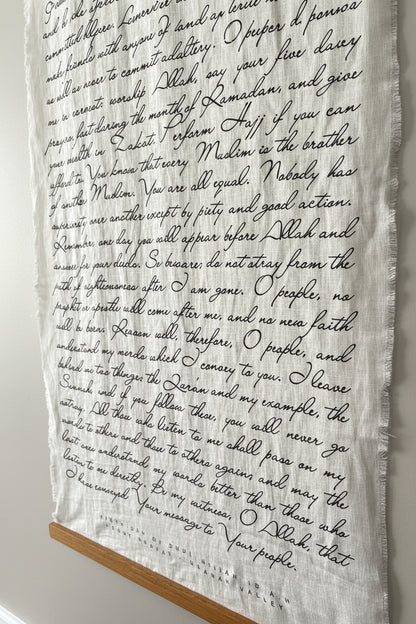 and to die
committed
make friends with anyone of land an
as will as never to commit adultery. O
me in worship Allah, say your five
prayers, fast during the month of Ramadan, and give
your wealth in Zakat. Perform Hajj if you can
afford to. You know that every Muslim is the brother
of another Muslim. You are all equal. Nobody has
superiority over another except by piety and good action.
Remember, one day you will appear before Allah and
answer for your deeds. So beware, do not stray from the
path of righteousness after I am gone. O people, no
prophet or apostle will come after me, and no new faith
will be born. Reason well, therefore, O people, and
understand my words which I convey to you. I leave
behind me two things, the Quran and my example, the
Sunnah and if you follow these, you will never go
astray. All those who listen to me shall pass on my
words to others and those to others again; and may the
last ones understand my words better than those who
listen to me directly. Be my witness, O Allah, that
I have conveyed Your message to Your people.
DAY OF DHUL-HIJJAH, 10 A.H
VALLEY